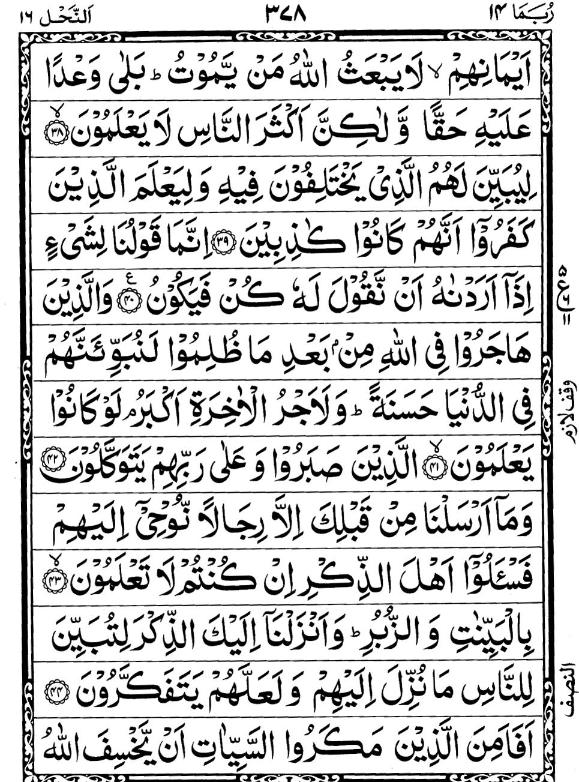 رُبَمَا ١٤ ٣٧٨ اَلنَّحْل ١٦
اَيْمَانِهِمْ ۙ لَا يَبْعَثُ اللّٰهُ مَنْ يَّمُوْتُ ؕ بَلٰى وَعْدًا
عَلَيْهِ حَقًّا وَّ لٰكِنَّ اَكْثَرَ النَّاسِ لَا يَعْلَمُوْنَ ۙ ﴿٣٨﴾
لِيُبَيِّنَ لَهُمُ الَّذِىْ يَخْتَلِفُوْنَ فِيْهِ وَ لِيَعْلَمَ الَّذِيْنَ
كَفَرُوْٓا اَنَّهُمْ كَانُوْا كٰذِبِيْنَ ﴿٣٩﴾ اِنَّمَا قَوْلُنَا لِشَىْءٍ
اِذَآ اَرَدْنٰهُ اَنْ نَّقُوْلَ لَهٗ كُنْ فَيَكُوْنُ ﴿٤٠﴾ ع وَالَّذِيْنَ
هَاجَرُوْا فِى اللّٰهِ مِنْۢ بَعْدِ مَا ظُلِمُوْا لَنُبَوِّئَنَّهُمْ
فِى الدُّنْيَا حَسَنَةً ؕ وَ لَاَجْرُ الْاٰخِرَةِ اَكْبَرُ ۘ لَوْ كَانُوْا
وقف لازم
يَعْلَمُوْنَ ۙ ﴿٤١﴾ الَّذِيْنَ صَبَرُوْا وَ عَلٰى رَبِّهِمْ يَتَوَكَّلُوْنَ ﴿٤٢﴾
وَمَآ اَرْسَلْنَا مِنْ قَبْلِكَ اِلَّا رِجَالًا نُّوْحِىْٓ اِلَيْهِمْ
فَسْئَلُوْٓا اَهْلَ الذِّكْرِ اِنْ كُنْتُمْ لَا تَعْلَمُوْنَ ۙ ﴿٤٣﴾
بِالْبَيِّنٰتِ وَ الزُّبُرِ ؕ وَ اَنْزَلْنَآ اِلَيْكَ الذِّكْرَ لِتُبَيِّنَ
لِلنَّاسِ مَا نُزِّلَ اِلَيْهِمْ وَ لَعَلَّهُمْ يَتَفَكَّرُوْنَ ﴿٤٤﴾
النصف
اَفَاَمِنَ الَّذِيْنَ مَكَرُوا السَّيِّاٰتِ اَنْ يَّخْسِفَ اللّٰهُ